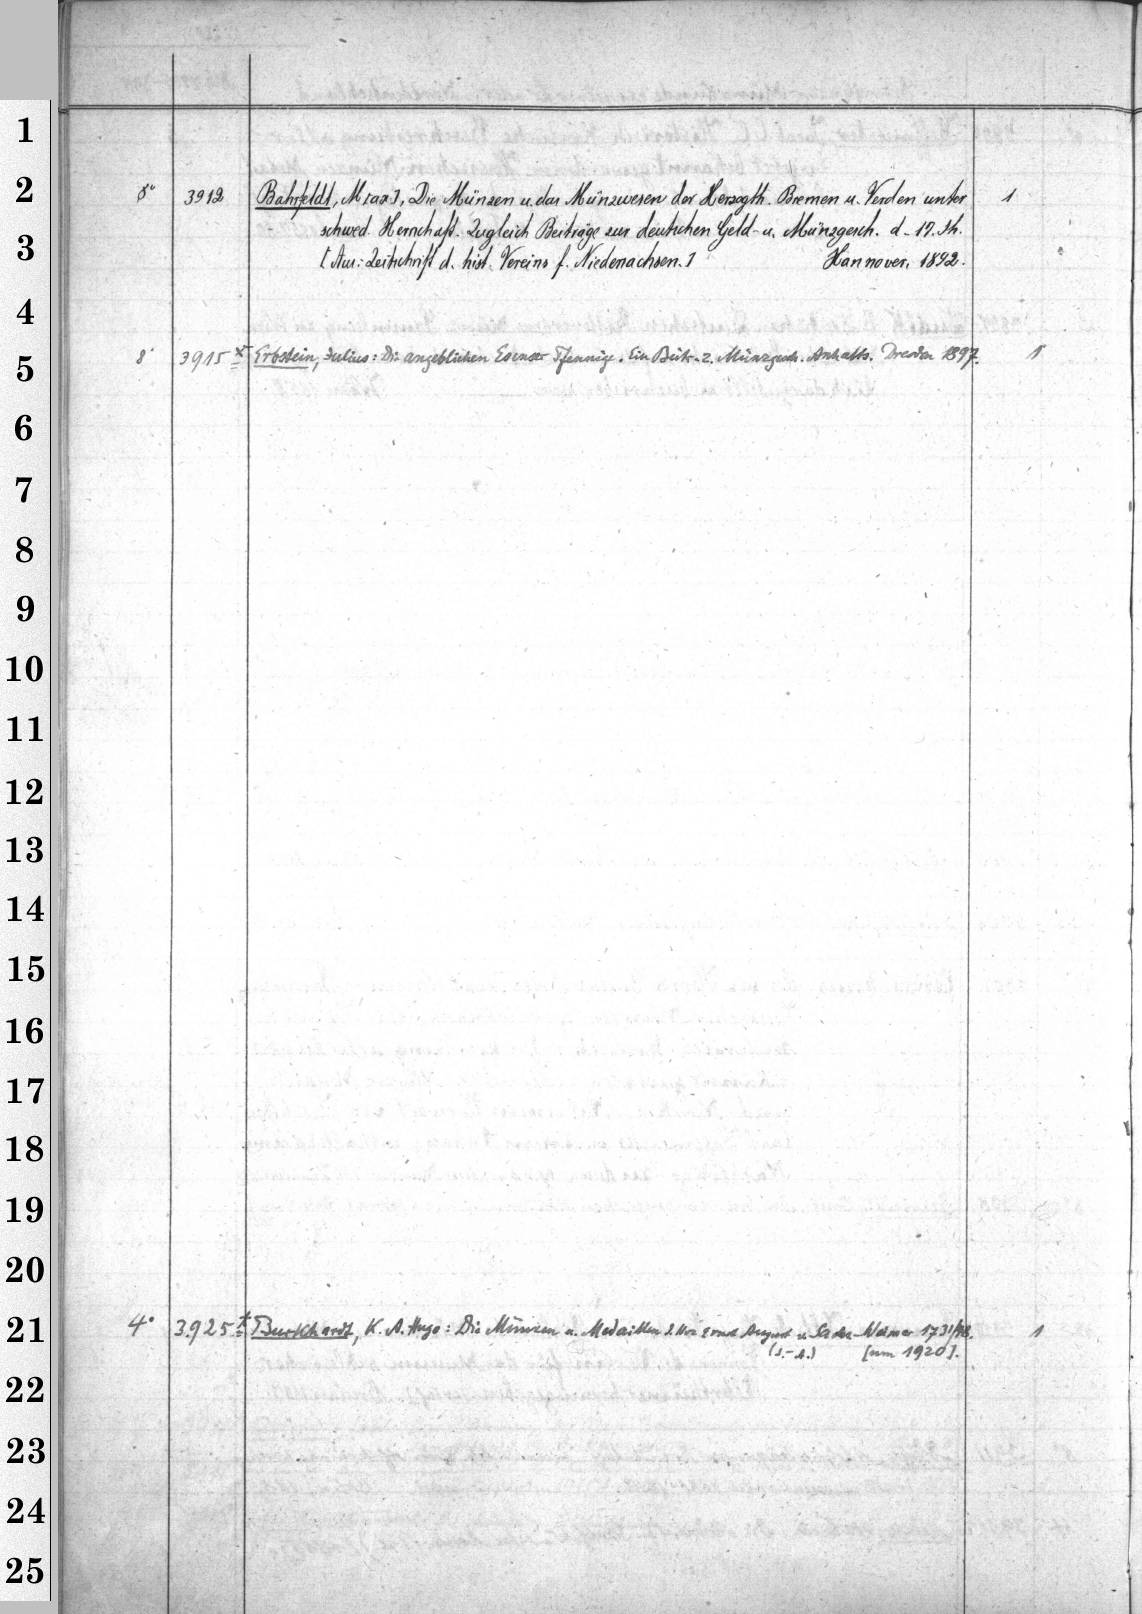 1
2
3
4
5
6
7
8
9
10
11
12
13
14
15
16
17
18
19
20
21
22
23
24
25
8° 3912 Bahrfeldt, M[ax], Die Münzen u. das Münzwesen der Herzogth. Bremen u. Verden unter 1
schwed. Herrschaft. Zugleich Beiträge zur deutschen Geld- u. Münzgesch. d. 17. Jh.
[Aus: Zeitschrift d. hist. Vereins f. Niedersachsen.] Hannover, 1892.
8° 3915 x Erbstein, Julius: Die angeblichen Esenser Pfennige. Ein Beitr. z. Münzgesch. Anhalts. Dresden 1897. 1
4° 3925 x Burkhardt, K. A. Hugo: Die Münzen u. Medaillen d. Hrz. Ernst August v. Sachs.-Weimar 1731/48. 1
(S.-A.) [um 1920].